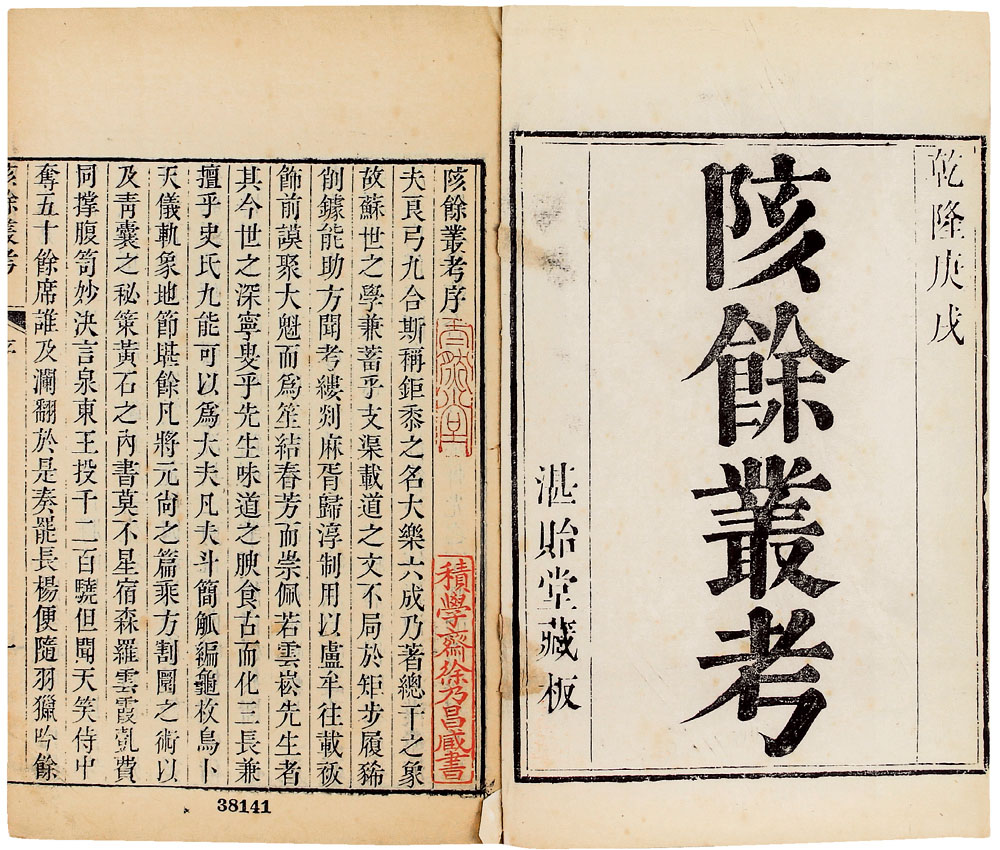 乾隆庚戌
陔餘叢考
湛貽堂藏板
陔餘叢考序
積學齋徐乃昌藏書
夫良弓九合斯稱鉅黍之名大樂六成乃著總干之象
故蘇世之學兼蓄乎支渠載道之文不局於矩步履豨
削鐻能助方聞考縷剡麻胥歸淳制用以盧牟往載祓
飾前謨聚大魁而為笙結春芳而崇佩若雲崧先生者
其今世之深寧叟乎先生味道之腴食古而化三長兼
擅乎史氏九能可以為大夫凡夫斗簡觚編龜枚鳥卜
天儀軌象地節堪餘凡將元尙之篇乘方割圜之術以
及靑囊之秘策黃石之內書莫不星宿森羅雲霞亂費
同撑腹笥妙决言泉東王投千二百驍但聞天笑侍中
奪五十餘席誰及瀾翻於是奏罷長楊便隨羽獵吟餘
陔餘叢考 序 一
38141